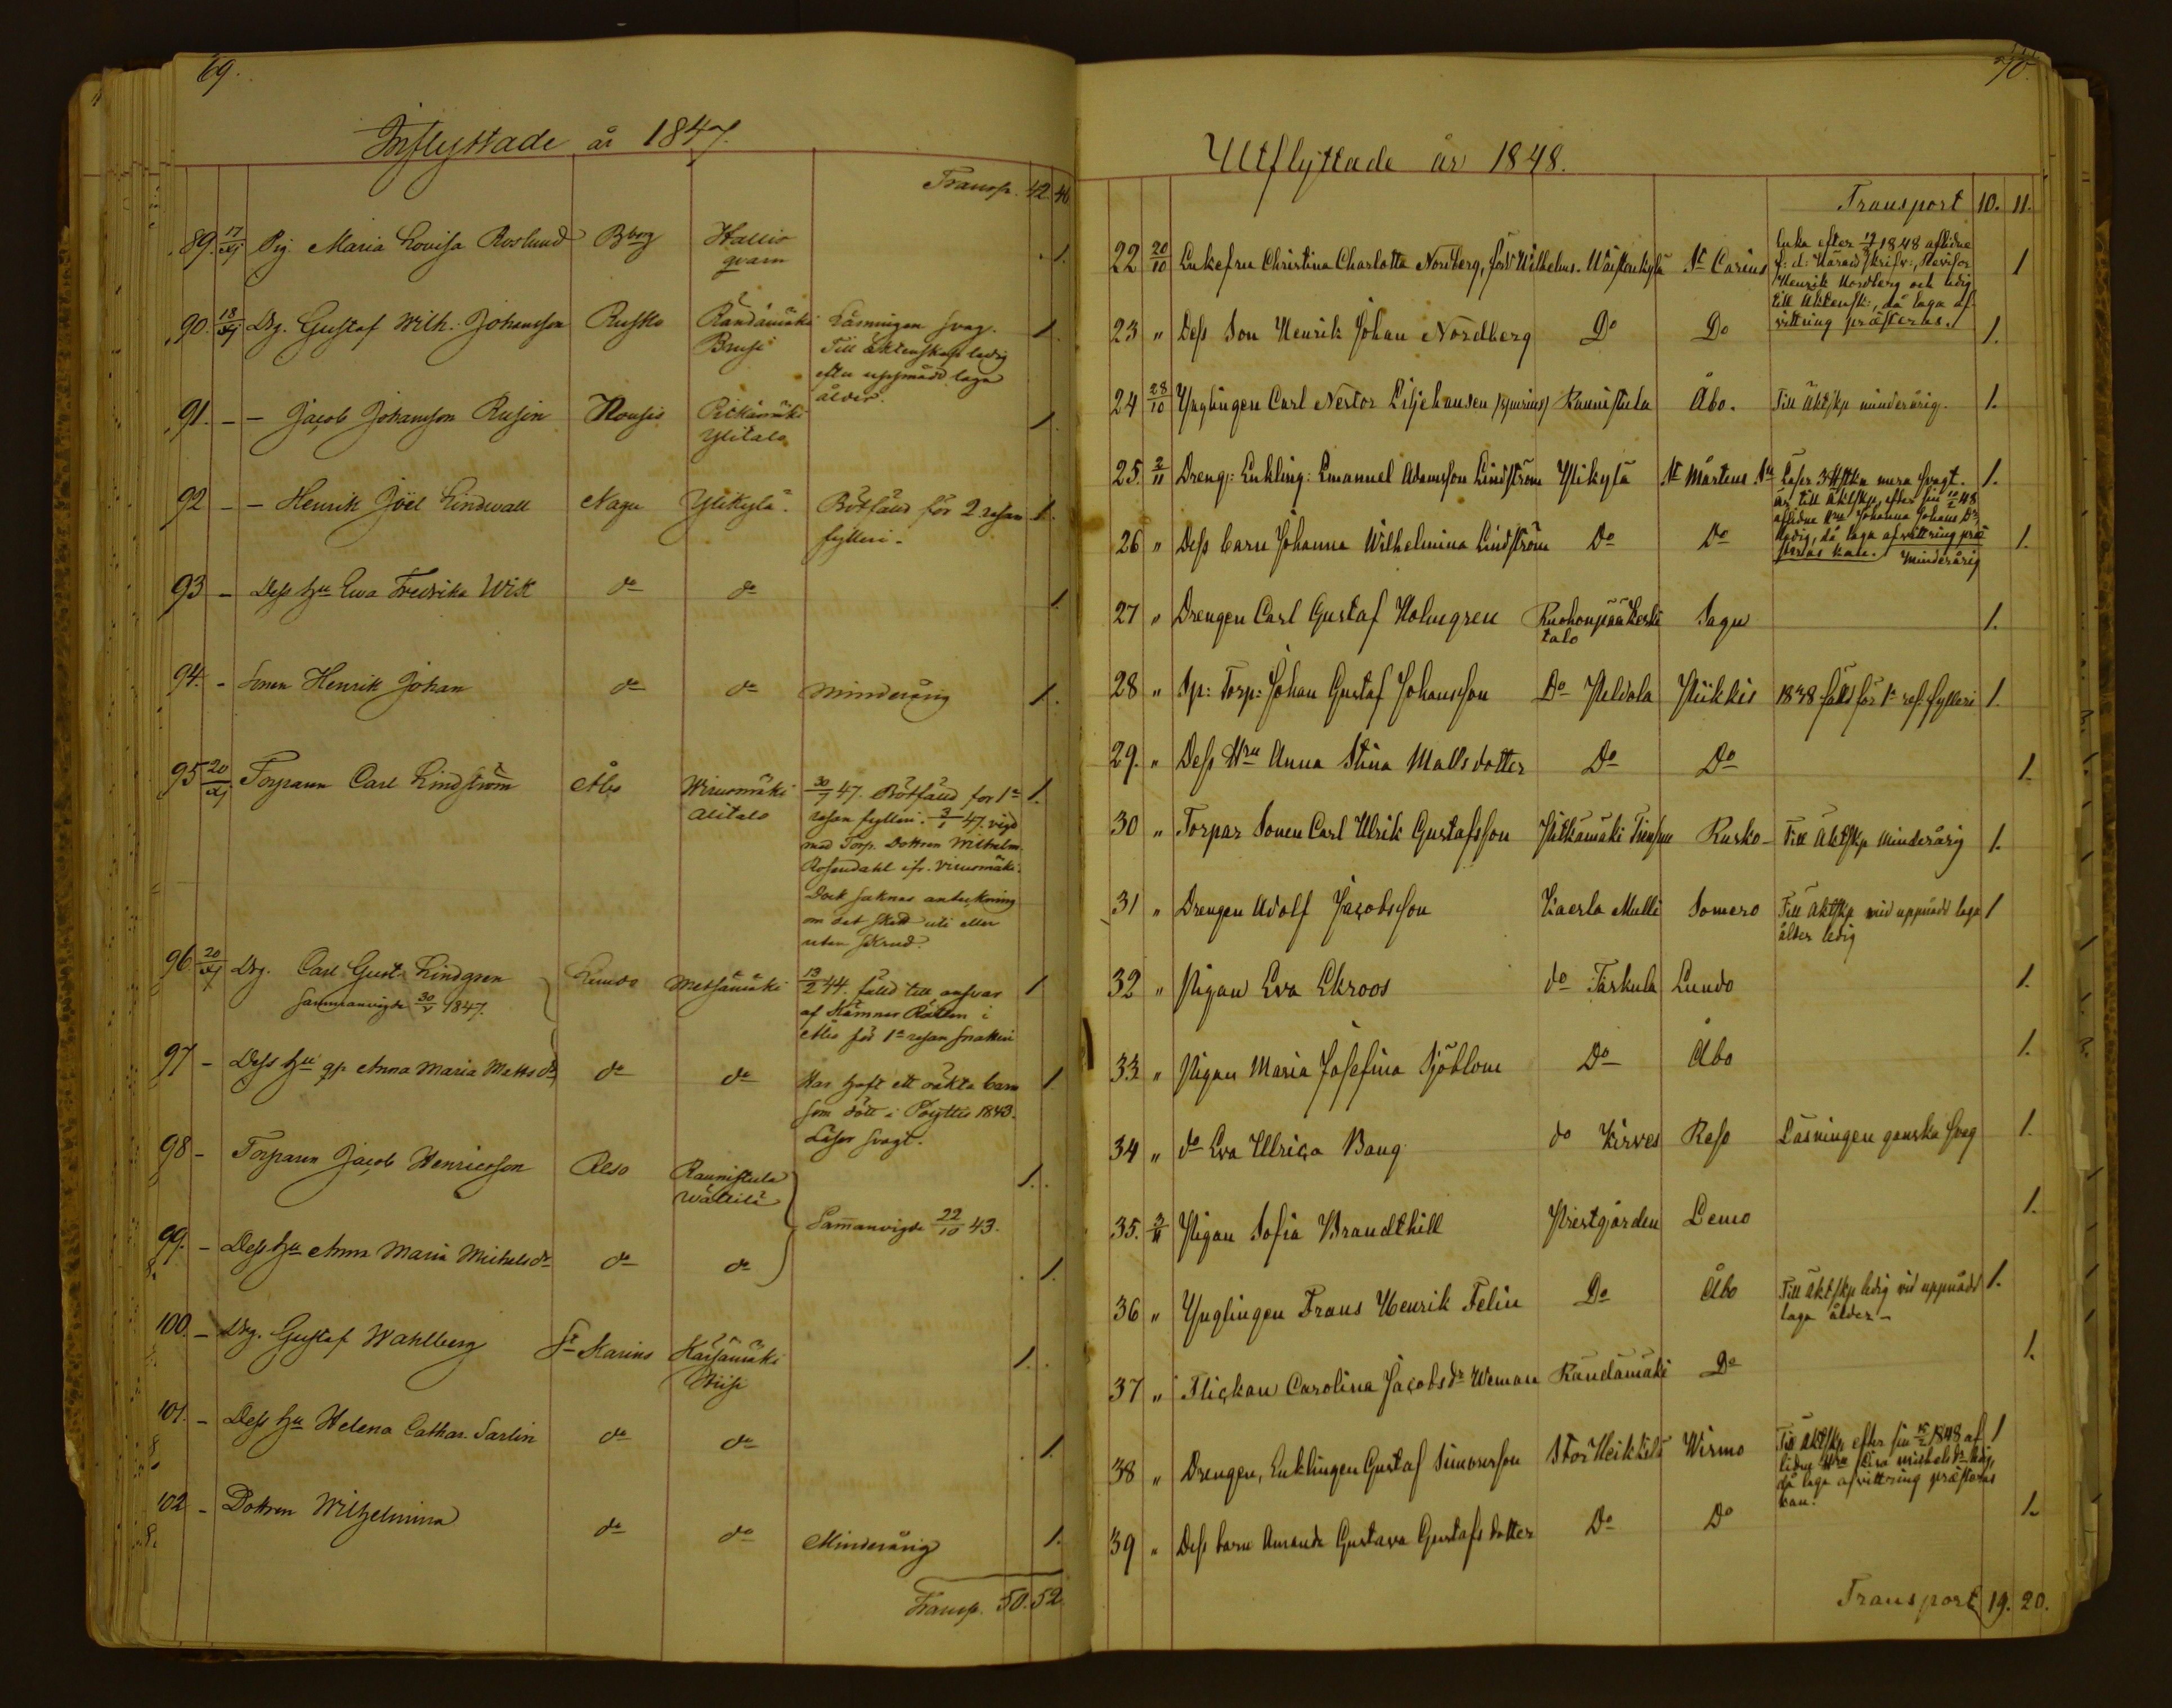 69.
Inflyttade år 1847.
Transp. 42. 46
89. 17/XI Pig. Maria Lovisa Roslund Bborg Hallis 1.
qvarn
90. 18/XI Drg. Gustaf Wilh. Johansson Rusko Randamäki Läsningen svag. 1.
Brusi Till Ektenskap ledig
efter uppnådd laga
ålder.
91. - - Jacob Johansson Rusin Nousis Pitkämäki 1
Ylitalo
92 - - Henrik Joël Lindwall Nagu Ylikylä. Bötfäld för 2 resan 1.
fylleri.
93 - Dess hu Ewa Fredrika Wik do do 1.
94. - Sonen Henrik Johan do do Minderårig 1.
95 20/XI Torparn Carl Lindström Åbo Wirusmäki 30/7 47. Bötfäld for 1a 1.
Alitalo resan fylleri. 3/1 47 vigd
med Torp. Dottren Wilhelm.
Rosendahl ifr. Virusmäki.
Dock saknas anteckning
om det skett uti eller
utan skrud.
96 20/XI Drg. Carl Gust. Lindgren Lundo Metsämäki 13/2 44. fälld till ansvar 1
Sammanvigde 30/V 1847. af Kämner Rätten i
Åbo för 1a resan snatteri
97 - Dess hu qp Anna Maria Matts dr do do Har haft ett oäkta barn 1.
som dött i Pöyttis 1843.
Läser svagt.
98 - Torparen Jacob Henricsson Reso Raunistula 1.
Wättilä
Sammanvigde 22/10 43.
99. - Dess hu Anna Maria Michelsdr do do 1.
100. - Drg. Gustaf Wahlberg St Karins Kärsämäki 1.
101. - Dess hu Helena Cathar. Sarlin do do 1.
102 - Dottren Wilhelmina do do Minderårig 1.
Transp. 50. 52.
70.
Utflyttade år 1848.
Transport 10. 11.
22 20/10 Enkefru Christina Charlotta Nordberg, född Wilhelms. St Carins Enka efter 1848 aflidne 1
f: d: Häradsskrifv:, Revisor
Henrik Nordberg och ledig
till Äktensk:, då laga af
vittring præsteras.
23 " Dess Son Henrik Johan Nordberg Do Do 1.
24 28/10 Ynglingen Carl Nestor Liljehausen Raunistula Åbo. Till Äktskp minderårig. 1.
25. 2/11 Dreng: Enkling: Emanuel Adamsson Lindström Ylikylä St Mårtens Läser svagt. 1.
är till äktskp, efter sin 48
aflidne Hru Johanna Johans Dr
ledig, då laga afvittring præ
steras kan. Minderårig
26 " Dess barn Johanna Wilhelmina Lindström Do Do 1.
27 " Drengen Carl Gustaf Holmgren Ruohonpää Keski Sagu 1.
talo
28 " Sp: Torp: Johan Gustaf Johansson Do Peldola Piikkis 1848 fälld för 1a res. fylleri 1.
29. " Dess Hru Anna Stina Mattsdotter Do Do 1.
30 " Torpar Sonen Carl Ulrik Gustafsson Pitkämäki Rusko Till Äktskp Minderårig 1.
31 " Drengen Adolf Jacobsson Kaerla Mulli Somero Till Äktskp vid uppnådd laga 1
ålder ledig
32 " Pigan Eva Ekroos do Tarkula Lundo 1.
33. " Pigan Maria Josefina Sjöblom Do Åbo 1.
34 " do Eva Ulrica Bang do Kirves Reso Läsningen ganska svag 1.
35. 3/11 Pigan Sofia Brandthill Prestgården Lemo 1.
36 " Ynglingen Frans Henrik Felin Do Åbo Till Äktskp ledig vid uppnådd 1.
laga ålder -
37 " Flickan Carolina Jacobsdr Weman Randamäki Do 1.
38 " Drengen, Enklingen Gustaf Simonsson Stor Heikkilä Wirmo Till Äktskp efter sin 1848 af 1
lidne Hru Michelsdr ledig,
då laga afvittring præsteras
kan.
39 " Dess barn Amanda Gustava Gustafsdotter Do Do 1.
Transport 19. 20.